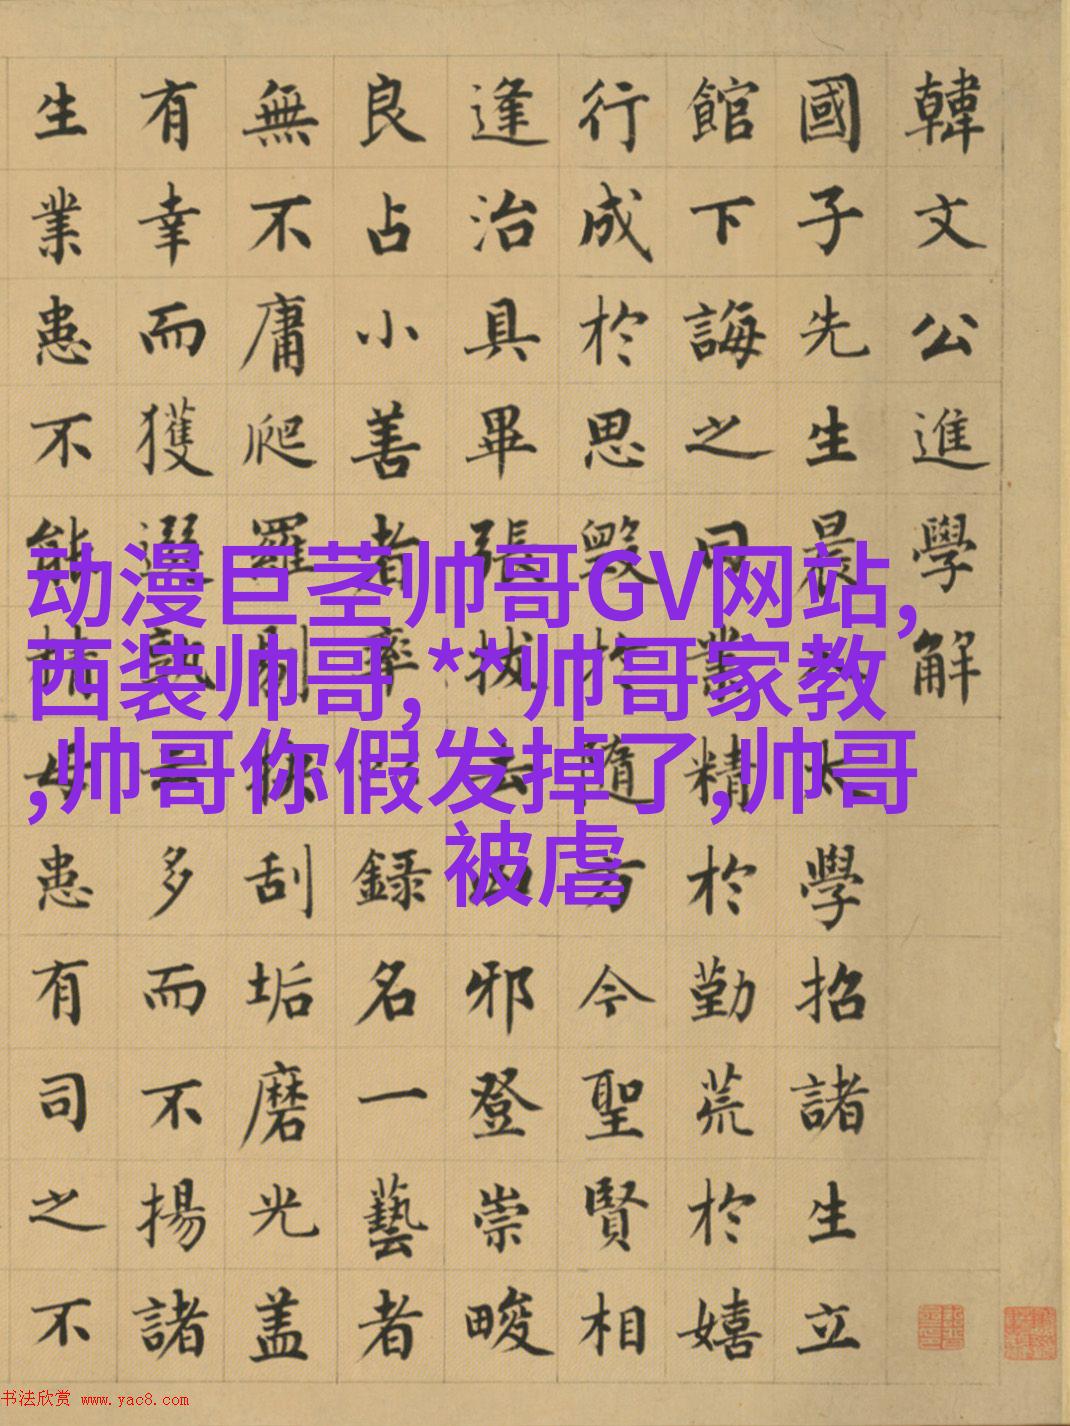 韓文公進學解
國子先生晨入太學招諸生立
館下誨之曰業精於勤荒於嬉
行成於思毀於隨方今聖賢相
逢治具畢張拔去凶邪登崇畯
良占小善者率以錄名一藝者
無不庸爬羅剔抉刮垢磨光盖
有幸而獲選孰云多而不揚諸
生業患不能精毋患有司之不
动漫巨茎帅哥GV网站,
西装帅哥,**帅哥家教
,帅哥你假发掉了,帅哥
被虐
书法欣赏 www.yac8.com